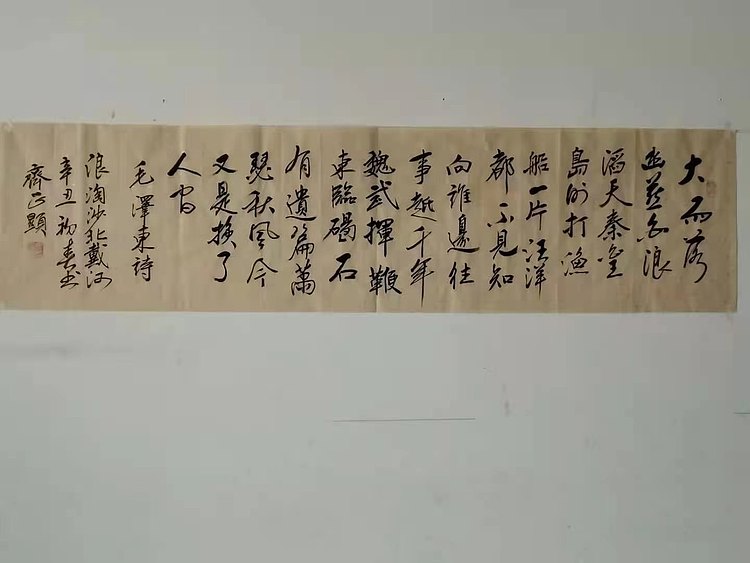 大雨落
幽燕白浪
滔天秦皇
島外打漁
船一片汪洋
都不見知
向誰邊往
事越千年
魏武揮鞭
東臨碣石
有遺篇蕭
瑟秋風今
又是換了
人間
毛澤東詩
浪淘沙北戴河
辛丑初春書
齊正顯